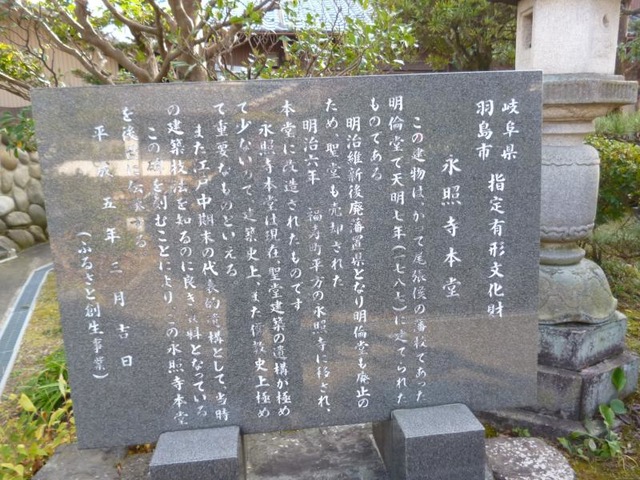 岐阜県
羽島市 指定有形文化財
永照寺本堂
この建物は、かって尾張侯の藩校であった
明倫堂で天明七年(一七八七)に建てられた
ものである
明治維新後廃藩置県となり明倫堂も廃止の
ため、聖堂も売却された
明治六年 福寿町平方の永照寺に移され、
本堂に改造されたものです
永照寺本堂は現在聖堂建築の遺構が極め
て少ないので、建築史上、また儒教史上極め
て重要なものといえる。
また江戸中期末の代表的遺構として、当時
の建築技法を知るのに良き資料となっている
この碑を刻むことにより、この永照寺本堂
を後世に伝承する
平成五年三月吉日
(ふるさと創生事業)